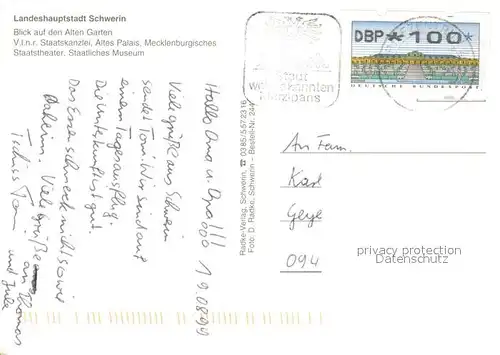 Landeshauptstadt Schwerin
Blick auf den Alten Garten
V.l.n.r. Staatskanzlei, Altes Palais, Mecklenburgisches
Staatstheater, Staatliches Museum
DBP * 100
DEUTSCHE BUNDESPOST
Stadt
weltbekannten
Marzipans
Radke-Verlag, Schwerin, ☎ 0385/5572316
Foto: D. Radke, Schwerin – Bestell-Nr. 244
Hallo Oma u. Opa!!!
19.08.99
Viele grüße aus Schwerin
sendet Tom. Wir sind auf
einem Tagesausflug.
Die Unterkunft ist gut.
Das Essen schmeckt nicht so wie
Daheim. Viele grüße
an Thomas
und Jule
Tschüss Tom
An Fam.
Karl
Geye
094
privacy protection
Datenschutz